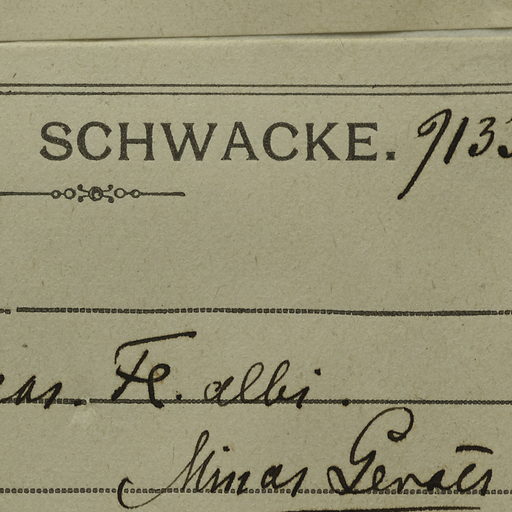 SCHWACKE. 9133
as. Fl. albi.
Minas Geraës